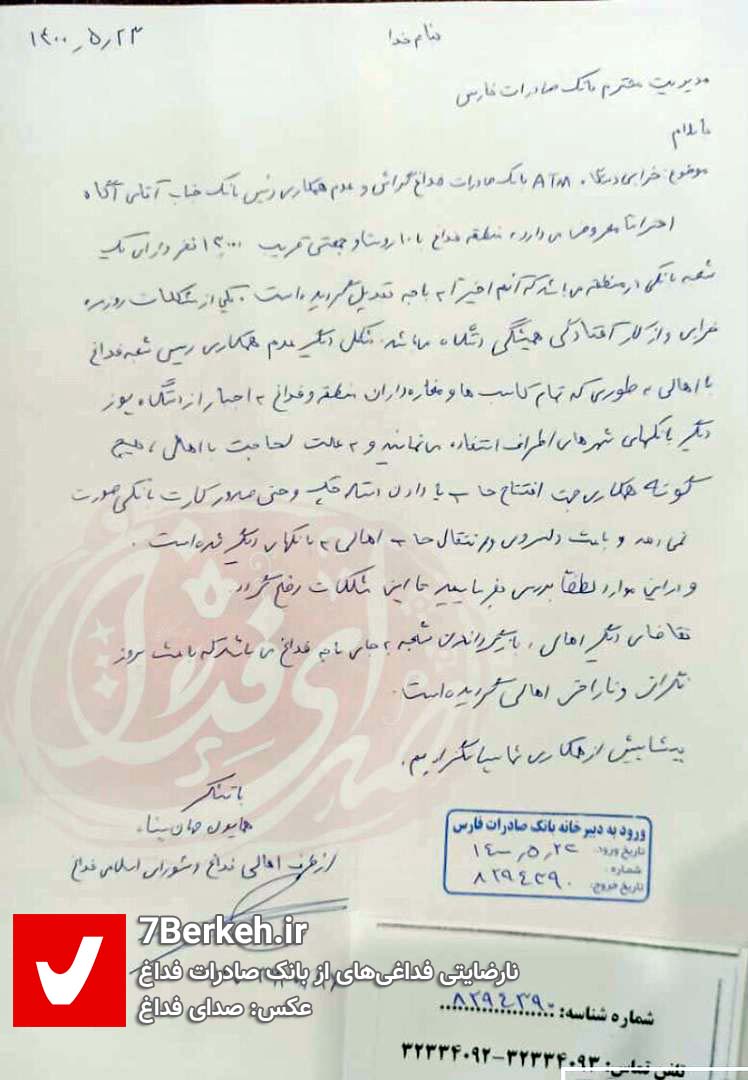 بنام خدا
۱۴۰۰٫۵٫۲۳
مدیریت محترم بانک صادرات فارس
با سلام
موضوع: خرابی دستگاه ATM بانک صادرات فداغ گراش و عدم همکاری رئیس بانک جناب آقای آگاه
احتراما معروض می دارد، منطقه فداغ با ۱۰ روستا و جمعیتی قریب ۱۳۰۰۰ نفر دارای یک
شعبه بانکی در منطقه می باشد که آنهم اخیراً به باجه تبدیل گردیده است. یکی از مشکلات روزمره
خرابی و از کار افتادگی همیشگی دستگاه میباشد. مشکل دیگر عدم همکاری رییس شعبه فداغ
با اهالی به طوری که تمام کاسب ها و مغازه داران منطقه و فداغ به اجبار از دستگاه پوز
دیگر بانکهای شهرهای اطراف استفاده می نمایند و به علت لجاجت با اهالی، هیچ
گونه همکاری جهت افتتاح حساب یا دادن دسته چک و حتی صدور کارت بانکی صورت
نمی دهد و باعث دلسردی و انتقال حساب اهالی به بانکهای دیگر شده است.
و در این موارد لطفاً بررسی بفرمایید تا این مشکلات رفع گردد.
تقاضای دیگر اهالی، بازگرداندن شعبه به جای باجه فداغ می باشد که باعث بروز
نگرانی و ناراحتی اهالی گردیده است.
پیشاپیش از همکاری شما سپاسگزاریم.
با تشکر
همایون
از طرف اهالی فداغ و شورای اسلامی فداغ
ورود به دبیرخانه بانک صادرات فارس
تاریخ ورود: ۱۴۰۰٫۵٫۲۳
شماره:
تاریخ خروج: ۸۲۹۴۳۹۰
صدای فداغ
7Berkeh.ir
نارضایتی فداغی‌های از بانک صادرات فداغ
عکس: صدای فداغ
شماره شناسه: ۸۲۹۴۳۹۰
تلفن تماس: ۳۲۳۳۴۰۹۳-۳۲۳۳۴۰۹۲